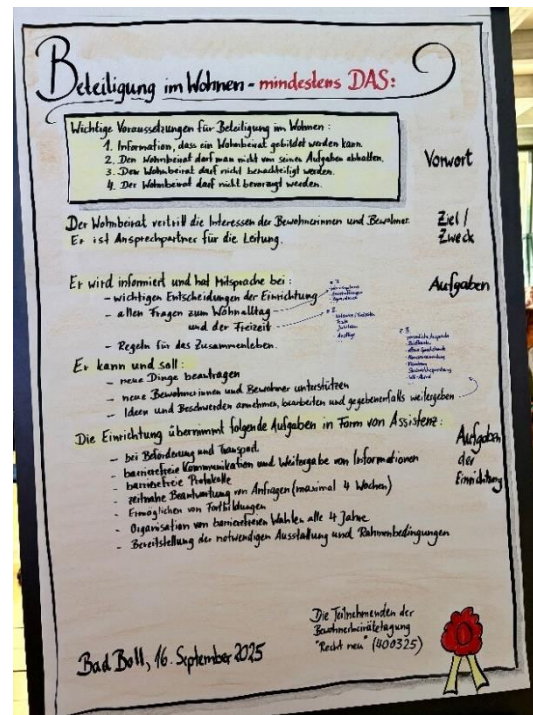 Beteiligung im Wohnen - mindestens DAS:
Wichtige Voraussetzungen für Beteiligung im Wohnen:
1. Information, dass ein Wohnbeirat gebildet werden kann.
2. Den Wohnbeirat darf man nicht von seinen Aufgaben abhalten.
3. Der Wohnbeirat darf nicht benachteiligt werden.
4. Der Wohnbeirat darf nicht bevorzugt werden.
Vorwort
Der Wohnbeirat vertritt die Interessen der Bewohnerinnen und Bewohner.
Er ist Ansprechpartner für die Leitung.
Ziel /
Zweck
Er wird informiert und hat Mitsprache bei:
Aufgaben
- wichtigen Entscheidungen der Einrichtung
- allen Fragen zum Wohnalltag
und der Freizeit
- Regeln für das Zusammenleben.
Er kann und soll:
- neue Dinge beantragen
- neue Bewohnerinnen und Bewohner unterstützen
- Ideen und Beschwerden annehmen, bearbeiten und gegebenenfalls weitergeben
Die Einrichtung übernimmt folgende Aufgaben in Form von Assistenz:
Aufgaben
der
Einrichtung
- bei Beförderung und Transport
- barrierefreie Kommunikation und Weitergabe von Informationen
- barrierefreie Protokolle
- zeitnahe Beantwortung von Anfragen (maximal 4 Wochen)
- Ermöglichen von Fortbildungen
- Organisation von barrierefreien Wahlen alle 4 Jahre
- Bereitstellung der notwendigen Ausstattung und Rahmenbedingungen
Die Teilnehmenden der
Bewohnerbeirätetagung
"Recht neu" (400325)
Bad Boll, 16. September 2025